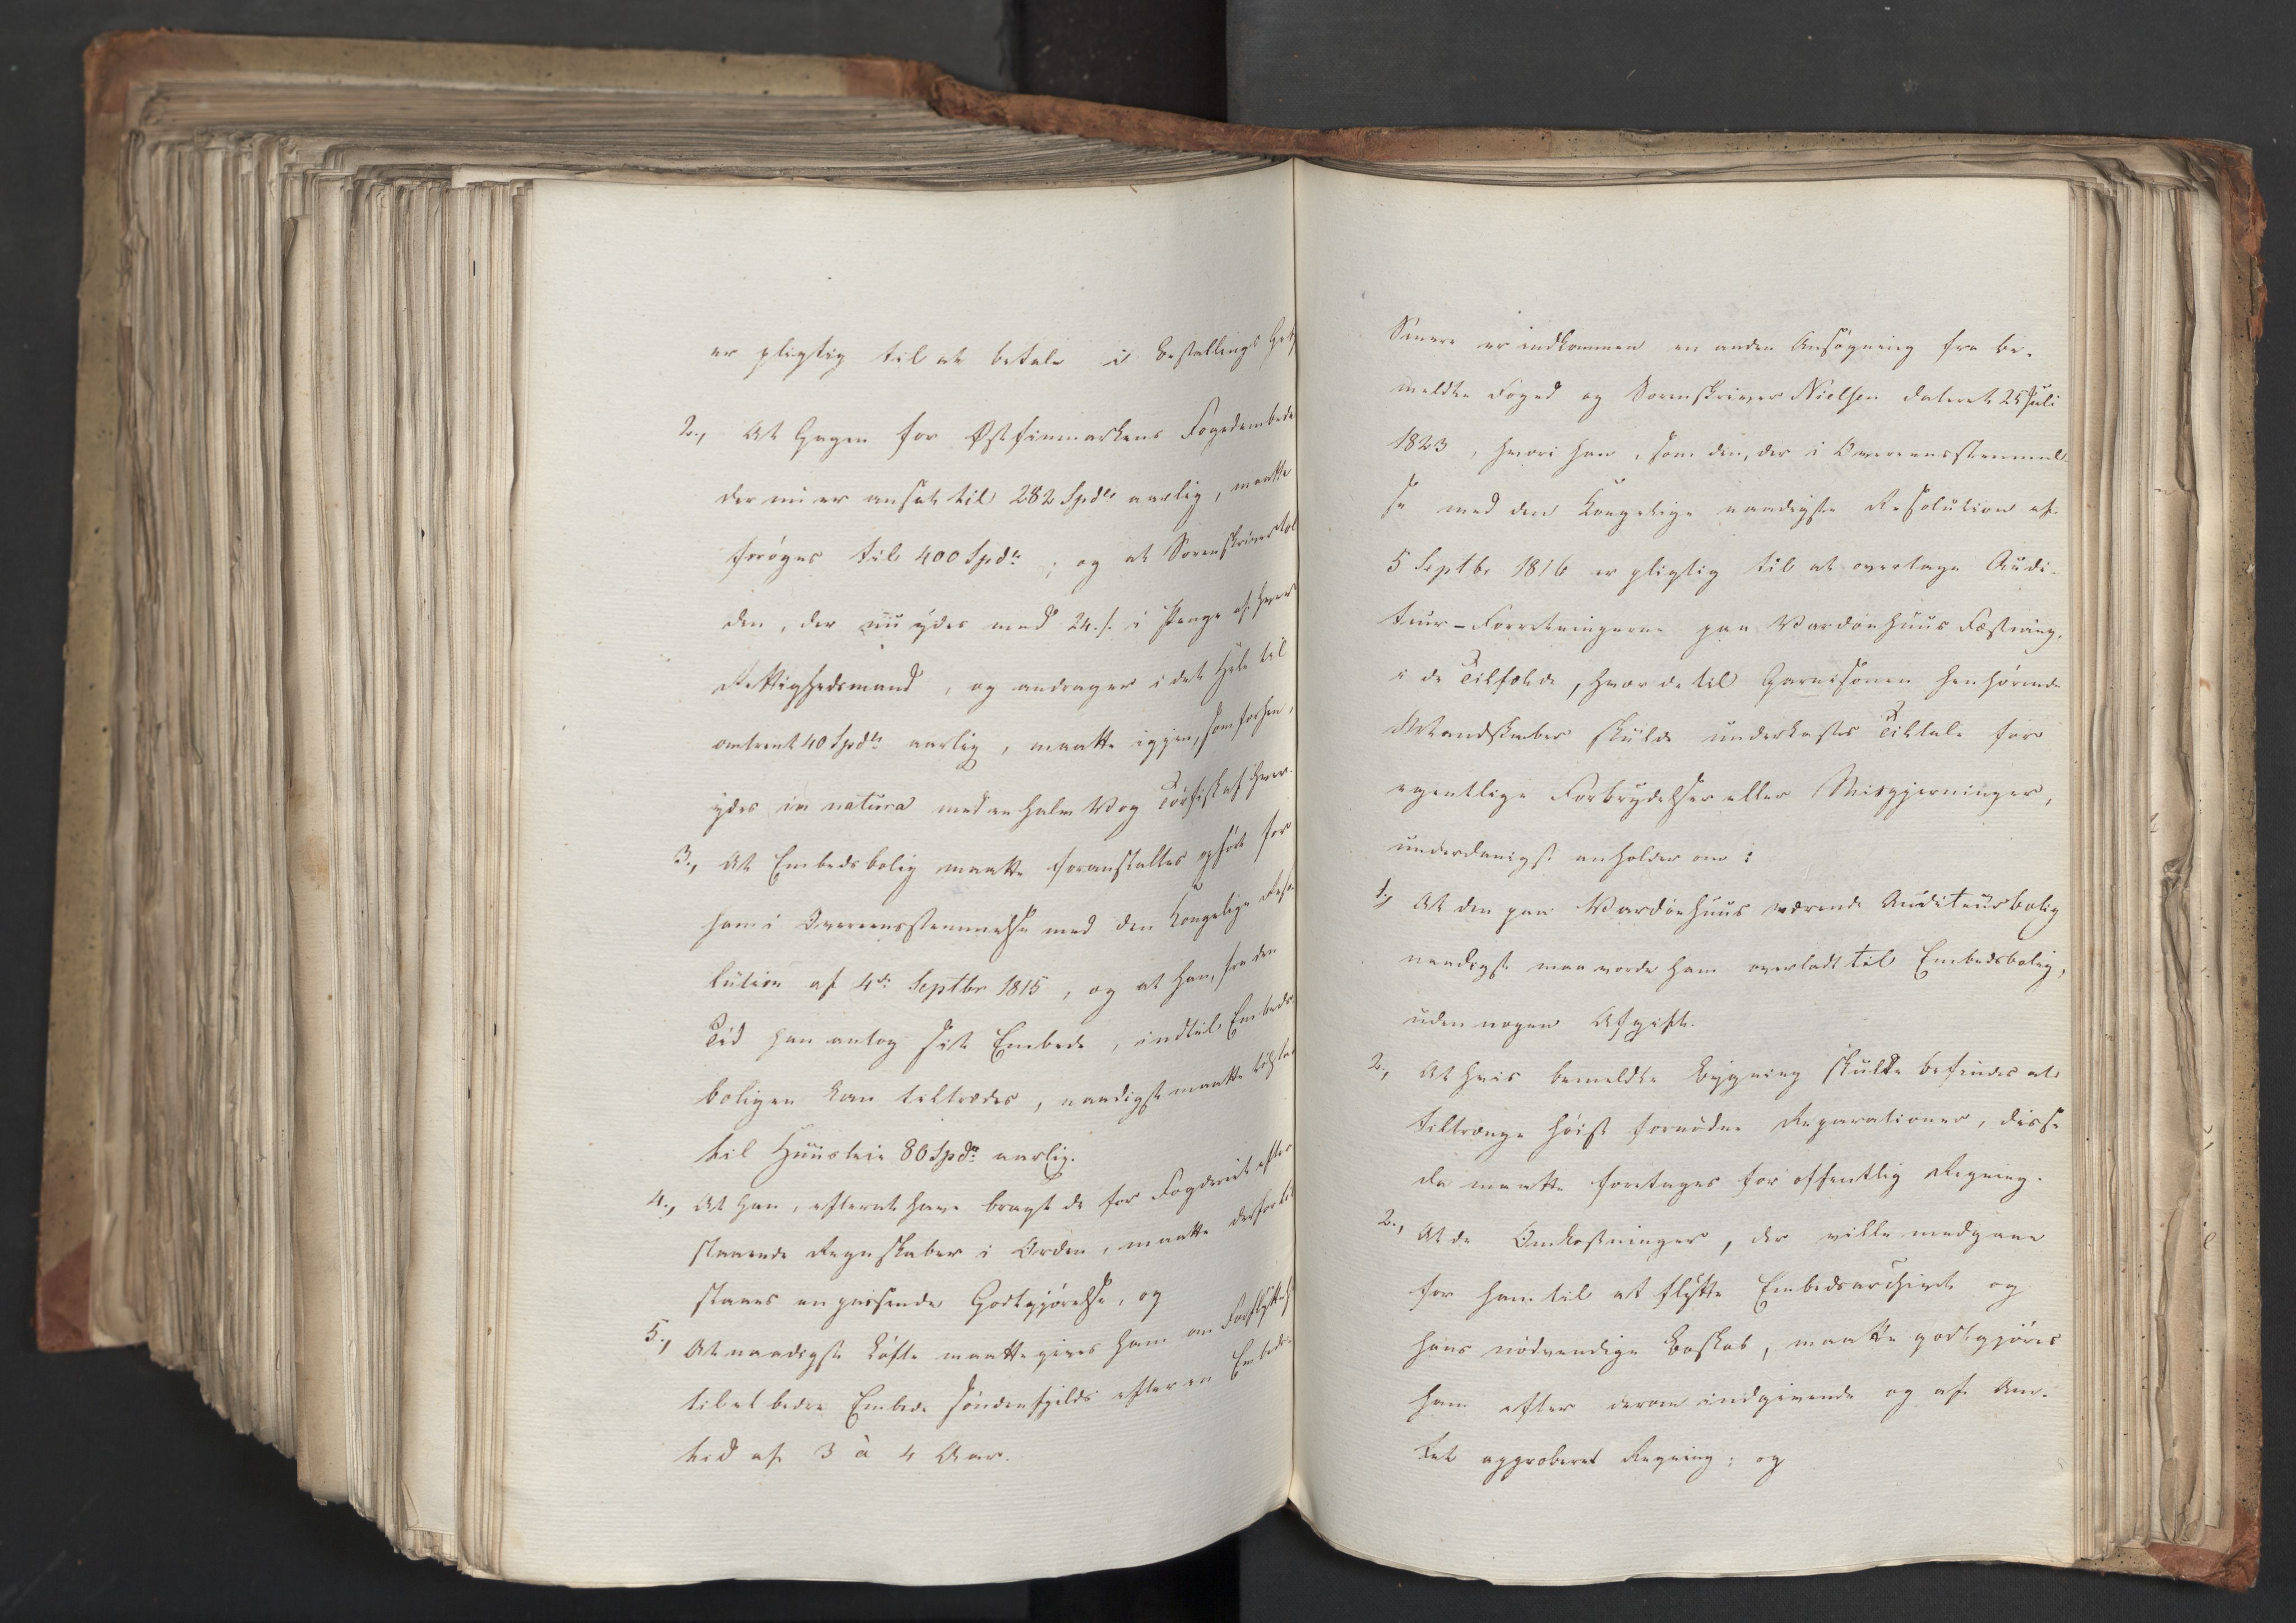 er pligtig til at betale i Bestallings Geb
2., At Gagen for Østfinmarkens Fogedembede
der nu er ansat til 282 Spdlr aarlig, maatte
forøges til 400 Spdlr; og at Sorenskrivertol
den, der nu ydes med 24 s. i Penge af hver
Rettighedsmand, og andrager i det Hele til
omtrent 40 Spdlr aarlig, maatte igjen, som forhen,
ydes in natura med en halv Vog Törfisk af hver.
3., At Embedsbolig maatte foranstaltes opført for
ham i Overeensstemmelse med den Kongelige Reso
lution af 4de Septbr 1815, og at han, fra den
Tid han antog sit Embede, indtil Embeds-
boligen kan tiltrædes, naadigst maatte tilstaa
til Huusleie 80 Spdlr aarlig.
4., At han, efterat have bragt de for Fogderiet efter
staaende Regnskaber i Orden, maatte derfor til
staaes en passende Godtgjörelse, og
5., At naadigst Löfte maatte gives ham om Forflyttels
til et bedre Embede söndenfjelds efter en Embeds-
tid af 3 à 4 Aar.
Senere er indkommen en anden Ansøgning fra be-
meldte Foged og Sorenskriver Nielsen dateret 25 Juli
1823, hvori han, som den, der i Overeensstemmel-
se med den Kongelige naadigste Resolution af
5 Septbr 1816 er pligtig til at overtage Audi-
teur-Forretningerne paa Vardöehuus Fæstning,
i de Tilfælde, hvor de til Garnisonen henhörende
Mandskaber skulde underkastes Tiltale for
egentlige Forbrydelser eller Misgjerninger,
underdanigst anholder om:
1., At den paa Vardöehuus værende Auditeursbolig
naadigst maa vorde ham overladt til Embedsbolig,
uden nogen Afgift.
2., At hvis bemeldte Bygning skulde befindes at
tiltrænge höist fornödne Reparationer, disse
da maatte foretages for offentlig Regning.
2., At de Omkostninger, der ville medgaae
for ham til at flytte Embedsarchivet og
hans nödvendige Boskab, maatte godtgjöres
ham efter derom indgivende og af Am-
tet approberet Regning; og